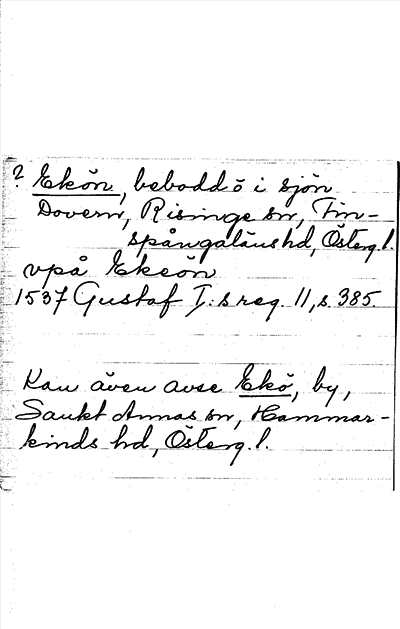 ? Ekön, bebodd ö i sjön
Dovern, Risinge sn, Fin-
spångaläns hd, Österg. l.
vpå Ekeön
1537 Gustaf I:s reg. 11, s. 385.
Kan även avse Ekö, by,
Sankt Annas sn, Hammar-
kinds hd, Österg. l.